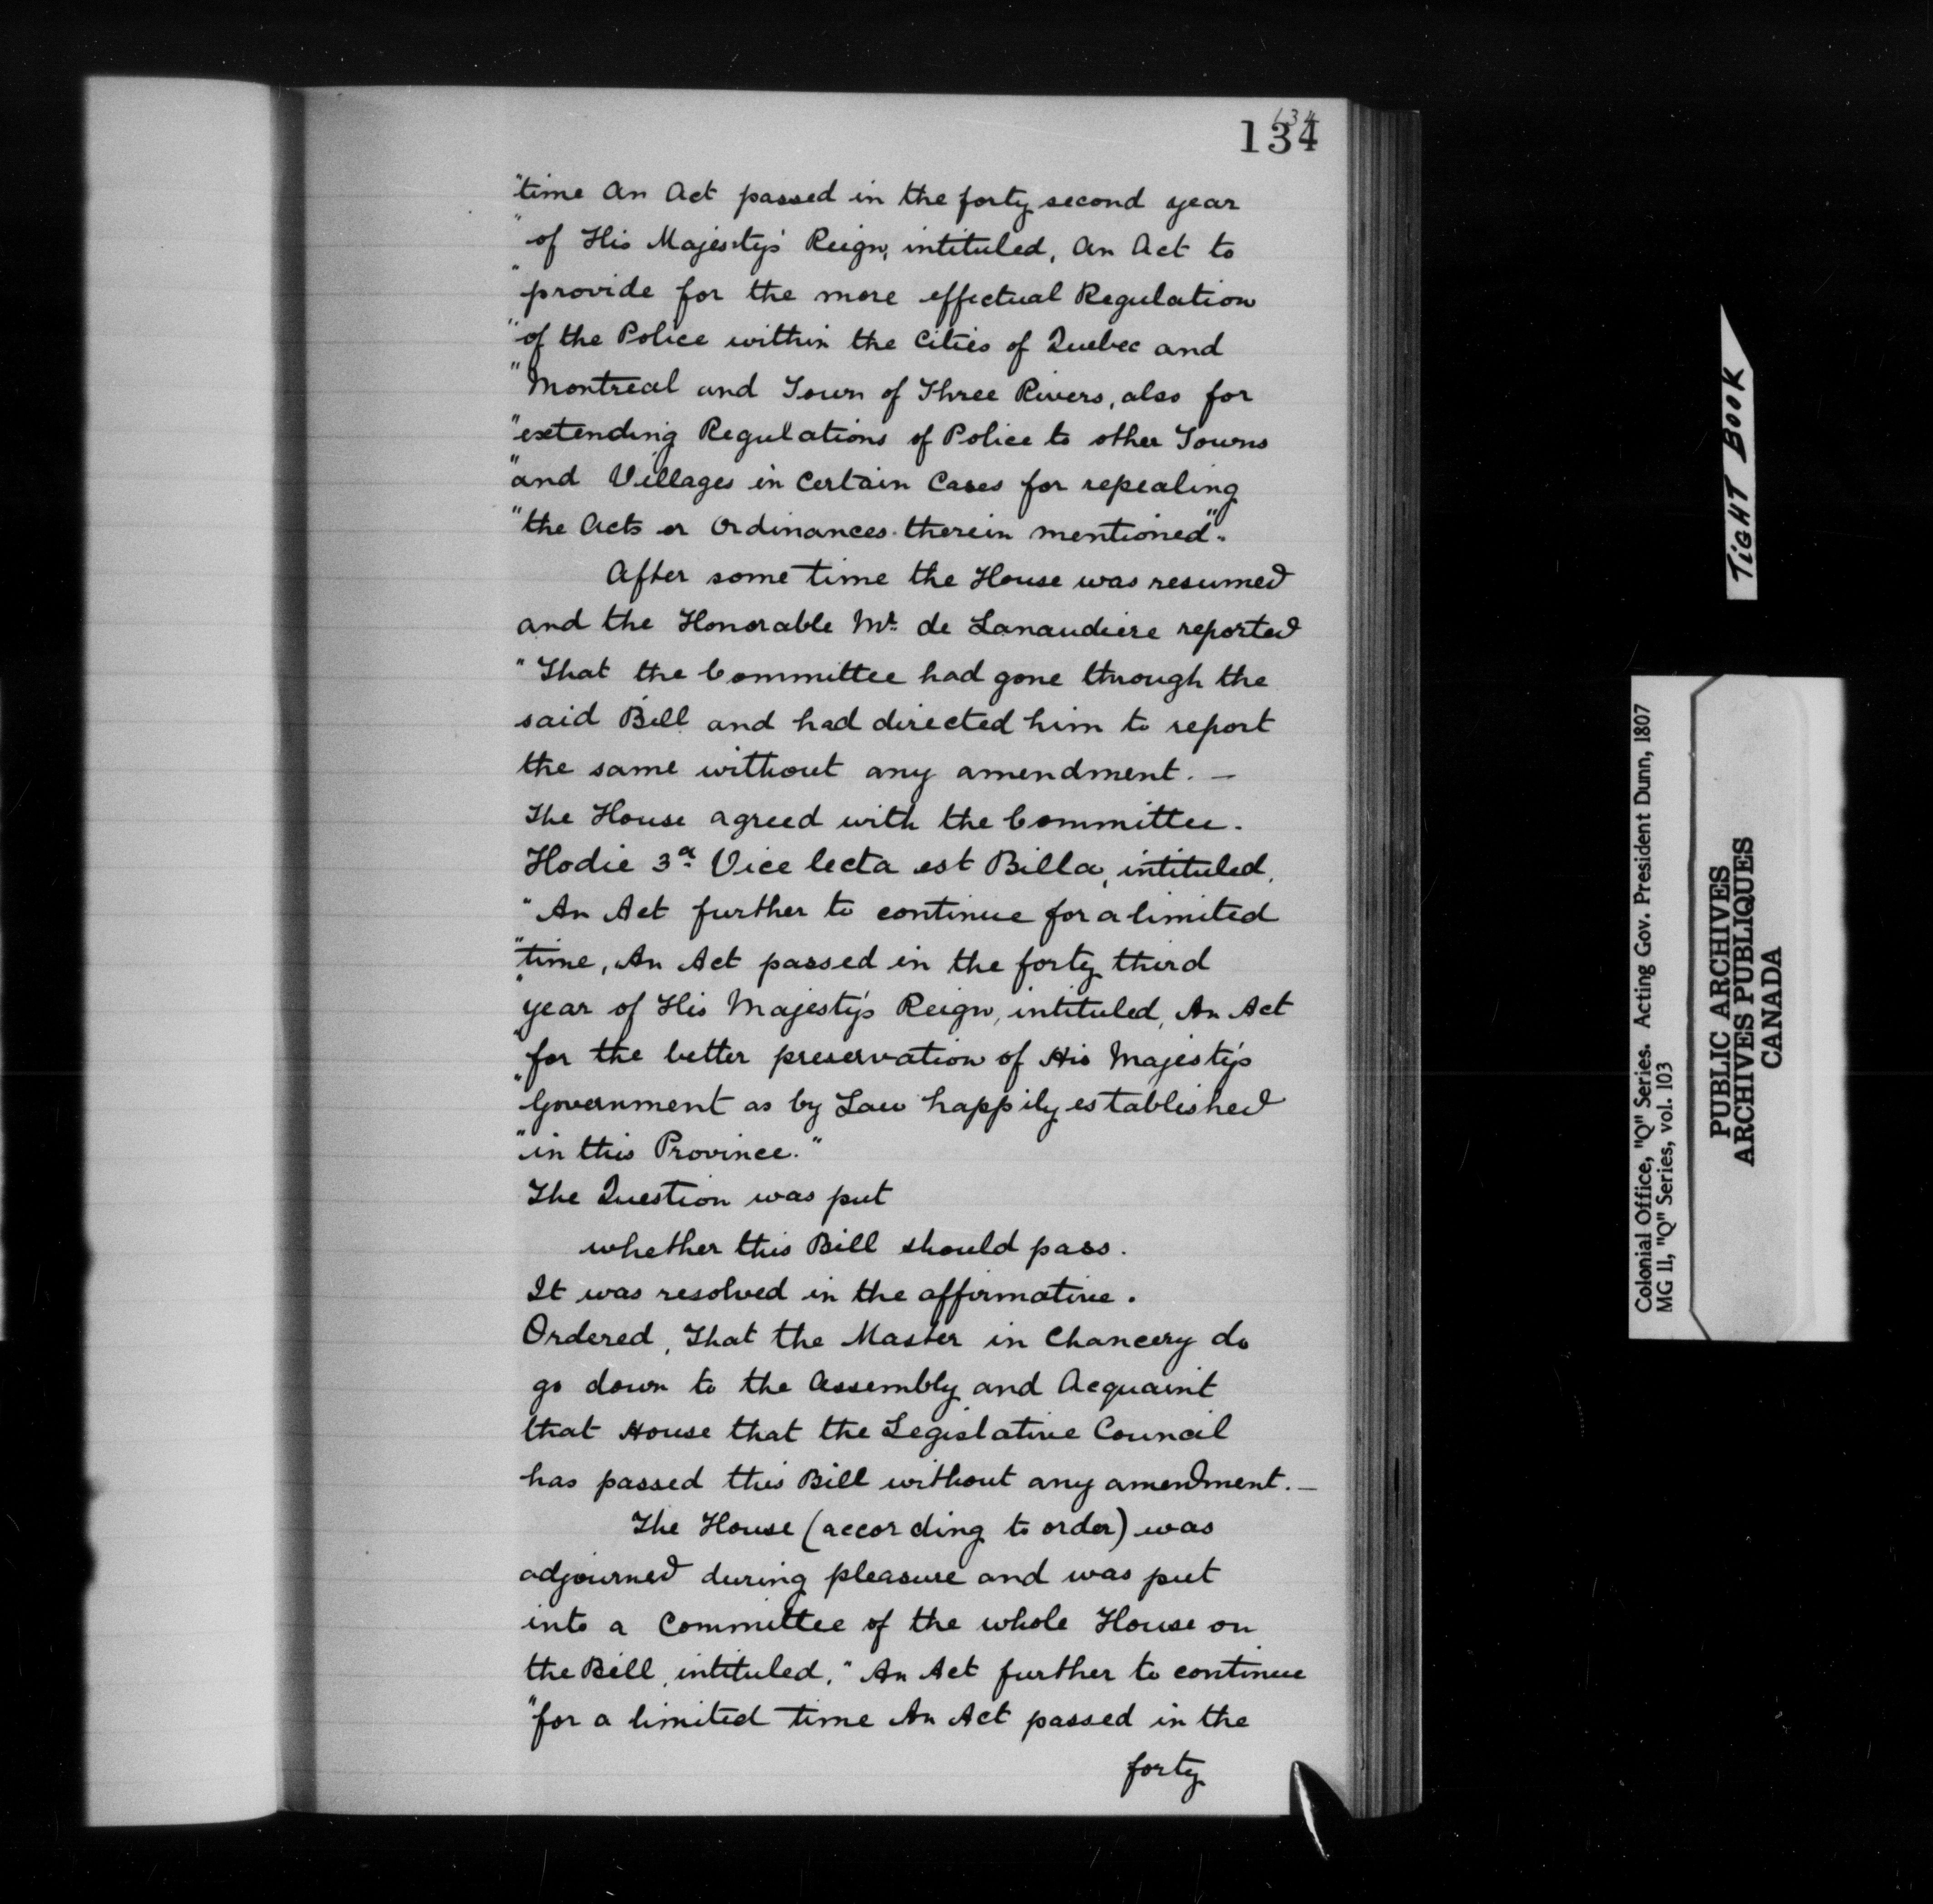 134
134
"time An Act passed in the forty second year
"of His Majesty's Reign, intituled, An Act to
"provide for the more effectual Regulation
"of the Police within the Cities of Quebec and
"Montreal and Town of Three Rivers, also for
"extending Regulations of Police to other Towns
"and Villages in Certain Cases for repealing
"the Acts or Ordinances therein mentioned".
After some time the House was resumed
and the Honorable Mr. de Lanaudiere reported
"That the Committee had gone through the
said Bill and had directed him to report
the same without any amendment. —
The House agreed with the Committee.
Hodie 3a Vice lecta est Billa, intituled,
"An Act further to continue for a limited
"time, An Act passed in the forty third
"year of His Majesty's Reign, intituled, An Act
"for the better preservation of His Majesty's
"Government as by Law happily established
"in this Province."
The Question was put
whether this Bill should pass.
It was resolved in the affirmative.
Ordered, That the Master in Chancery do
go down to the Assembly and Acquaint
that House that the Legislative Council
has passed this Bill without any amendment. —
The House (according to order) was
adjourned during pleasure and was put
into a Committee of the whole House on
the Bill, intituled, "An Act further to continue
"for a limited time An Act passed in the
forty
TIGHT BOOK
Colonial Office, "Q" Series. Acting Gov. President Dunn, 1807
MG 11, "Q" Series, vol. 103
PUBLIC ARCHIVES
ARCHIVES PUBLIQUES
CANADA